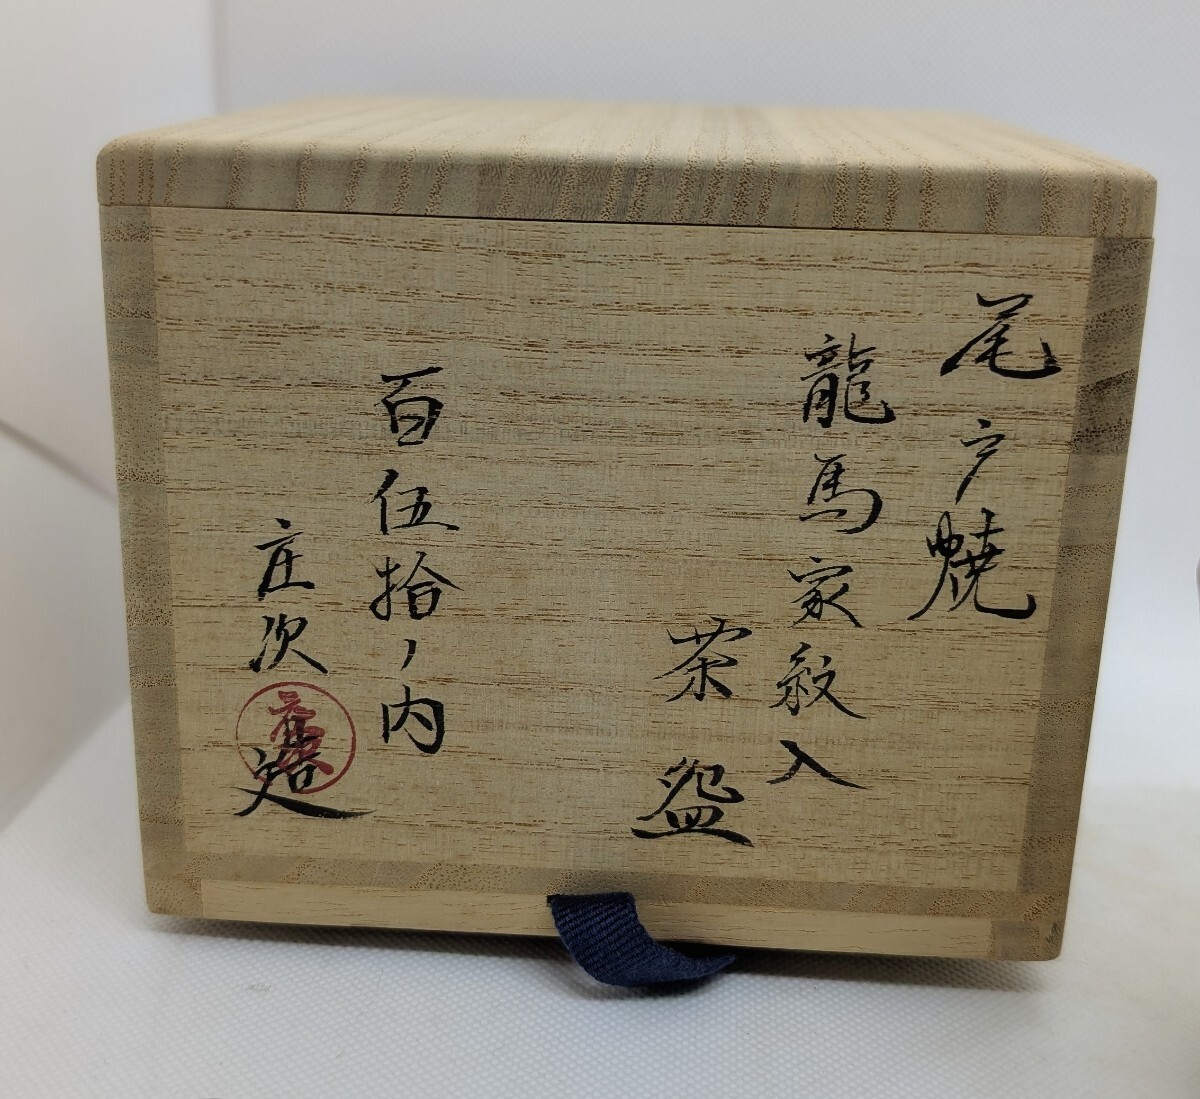 尾戸焼
龍馬家紋入
茶盌
百伍拾ノ内
庄次造